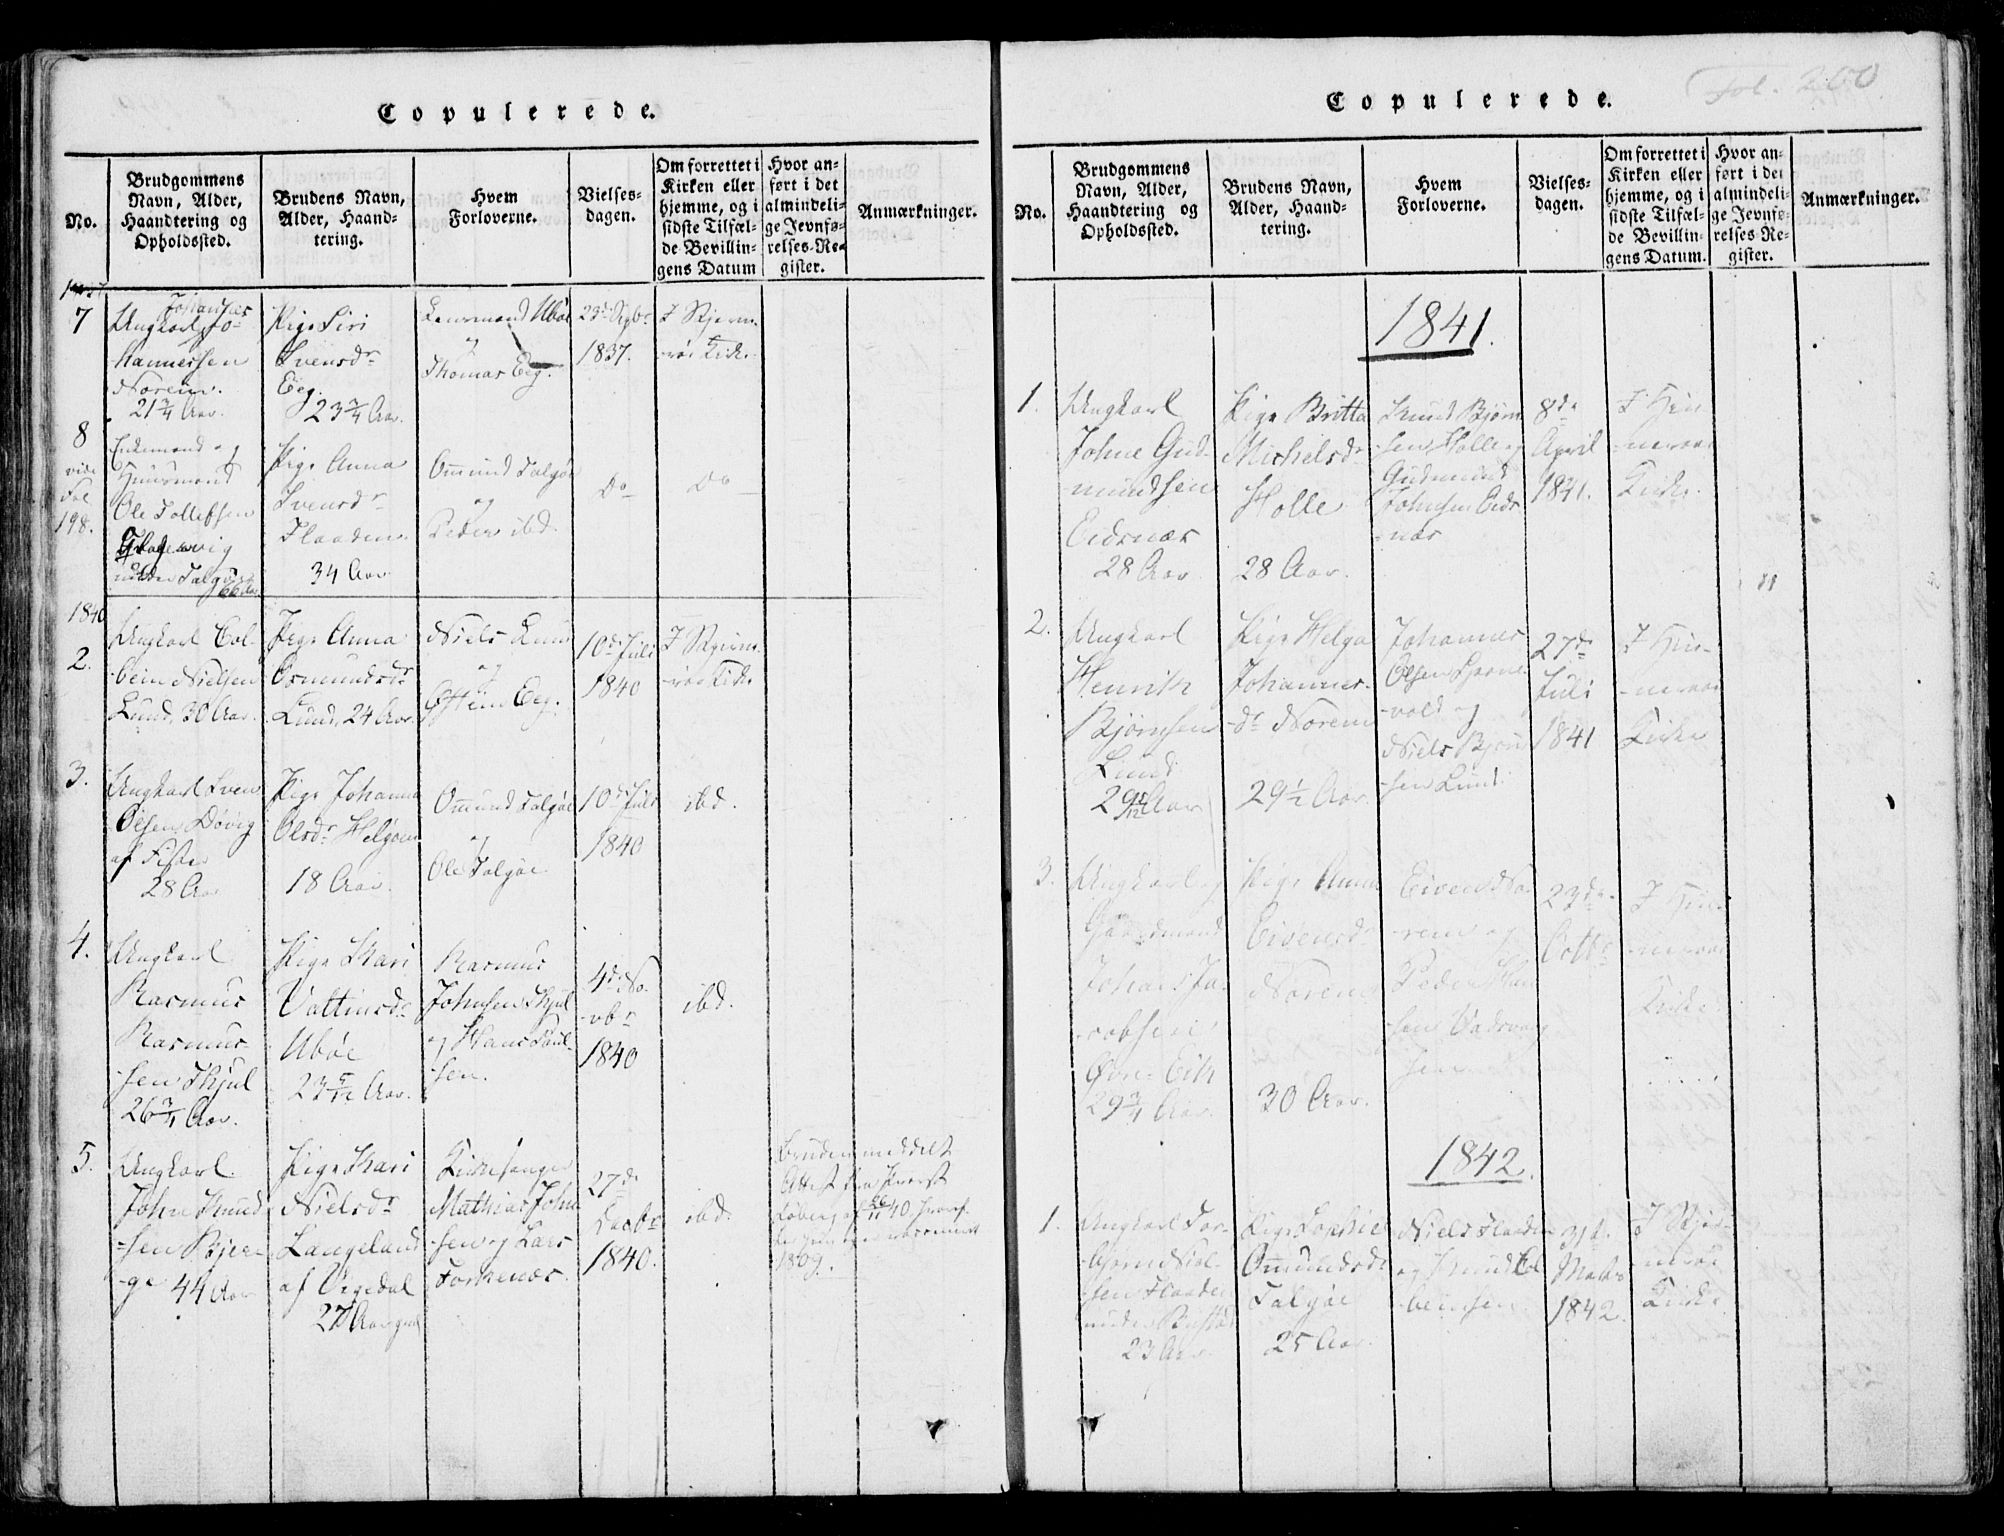 Copulerede.
No.
Brudgommens
Navn, Alder,
Haandtering og
Opholdssted.
Brudens Navn,
Alder, Haand-
tering.
Hvem
Forloverne.
Vielses-
dagen.
Om forrettet i
Kirken eller
hjemme, og i
sidste Tilfæl-
de Bevillin-
gens Datum
Hvor an-
ført i det
almindeli-
ge Jevnfø-
relses-Re-
gister.
Anmærkninger.
7
Johannes
Ungkarl Jo-
hannessen
Norem.
21 3/4 Aar.
Pige Siri
Svensdr
Eeg.
23 3/4 Aar.
Lensmand Uböe
og
Thomas Eeg.
1837.
8
vide
Fol
198.
Enkemand og
Huusmand
Ole Tollefsen
under Talgøe
66 Aar
Pige Anna
Svensdr
Flaaden
34 Aar
Ommund Talgøe
og
Peder ibd.
Do
Do
1840
2.
Ungkarl Col-
bein Nielsen
Lund, 30 Aar.
Pige Anna
Osmundsdr
Lund, 24 Aar
Niels Lund
og
Eeg.
10de Juli
1840
3.
Ungkarl Sven
Olsen Døvig
af Fister
28 Aar
Pige Johanna
Olsdr Helgøen
18 Aar.
Ommund Talgøe
og
Ole Talgøe
10de Juli
1840
ibd.
4.
Ungkarl
Rasmus
Rasmus-
sen Skjul
26 3/4 Aar.
Pige Kari
Vattensdr
Uböe
23 5/12 Aar.
Rasmus
Johnsen Skjul
og Hans Poul-
sen.
4de No-
vbr
1840
ibd.
5.
Ungkarl
John Knud-
sen Bjer-
ge 44 Aar
Pige Kari
Nielsdr
Langeland
af Vigedal
27 Aar gml
Kirkesanger
Mathias John-
sen og Lars
27de
Decbr
1840.
ibd.
Bruden meddelt
Attest fra Provst
1809.
Copulerede.
Fol. 200
No.
Brudgommens
Navn, Alder,
Haandtering og
Opholdssted.
Brudens Navn,
Alder, Haand-
tering.
Hvem
Forloverne.
Vielses-
dagen.
Om forrettet i
Kirken eller
hjemme, og i
sidste Tilfæl-
de Bevillin-
gens Datum.
Hvor an-
ført i det
almindeli-
ge Jevnfø-
relses Re-
gister.
Anmærkninger.
1841.
1.
Ungkarl
Johne Gud-
mundsen
Eidsnæs
28 Aar
Pige Britta
Michelsdr
Holle
28 Aar.
Knud Bjørn-
sen Holle og
Gudmund
Johnsen Eids-
næs
8de
April
1841.
I Hin-
neraae
Kirke.
2.
Ungkarl
Henrik
Bjørnsen
Lund
29 5/12 Aar
Pige Helga
Johannes-
dr Norem
29 1/2 Aar.
Johannes
Olsen
-vold og
Niels Bjørn-
sen Lund
27de
Juli
1841
I Hin-
neraae
Kirke
3.
Ungkarl og
Gaardmand
Johans Ja-
cobsen
Øvre Eik
29 3/4 Aar.
Pige Anna
Eivensdr
Norem
30 Aar.
Eiven No-
rem og
Peder
23de
Octbr
I Hin-
neraae
Kirke
1842.
1.
Ungkarl Tor-
bjørn Niel-
sen Flaaden
under
23 Aar.
Pige Sophie
Ommundsdr
Talgøe
25 Aar.
Niels Flaaden
og Knud Col-
beinsen
1842.
Kirke